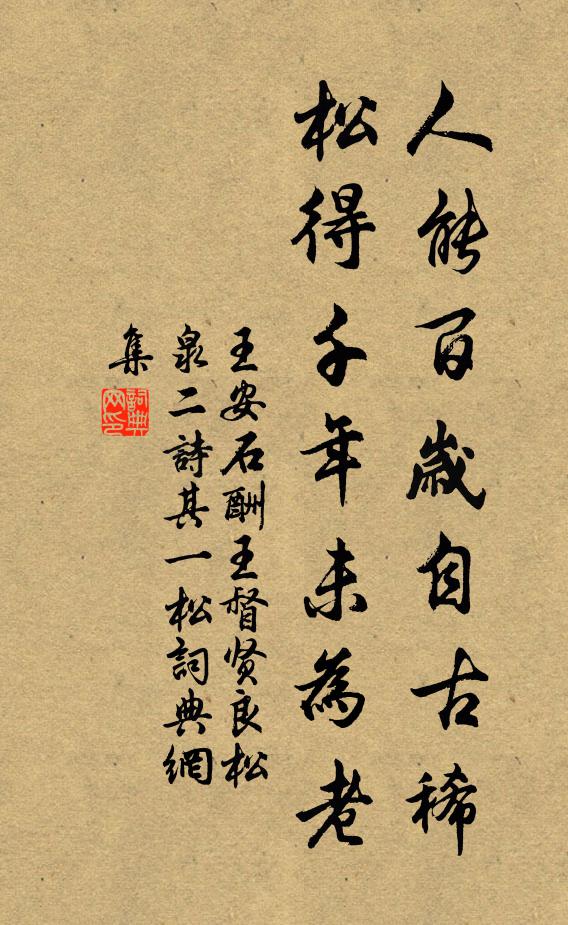 人能百歲自古稀
松得千年未為老
王安石酬王督贤良松
泉二詩其一松詞典網
集
詞典
网印